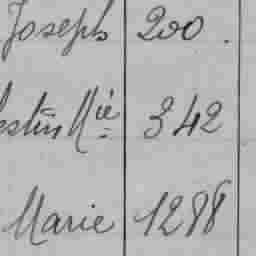 Joseph 200.
estin Mie 342
Marie 1288